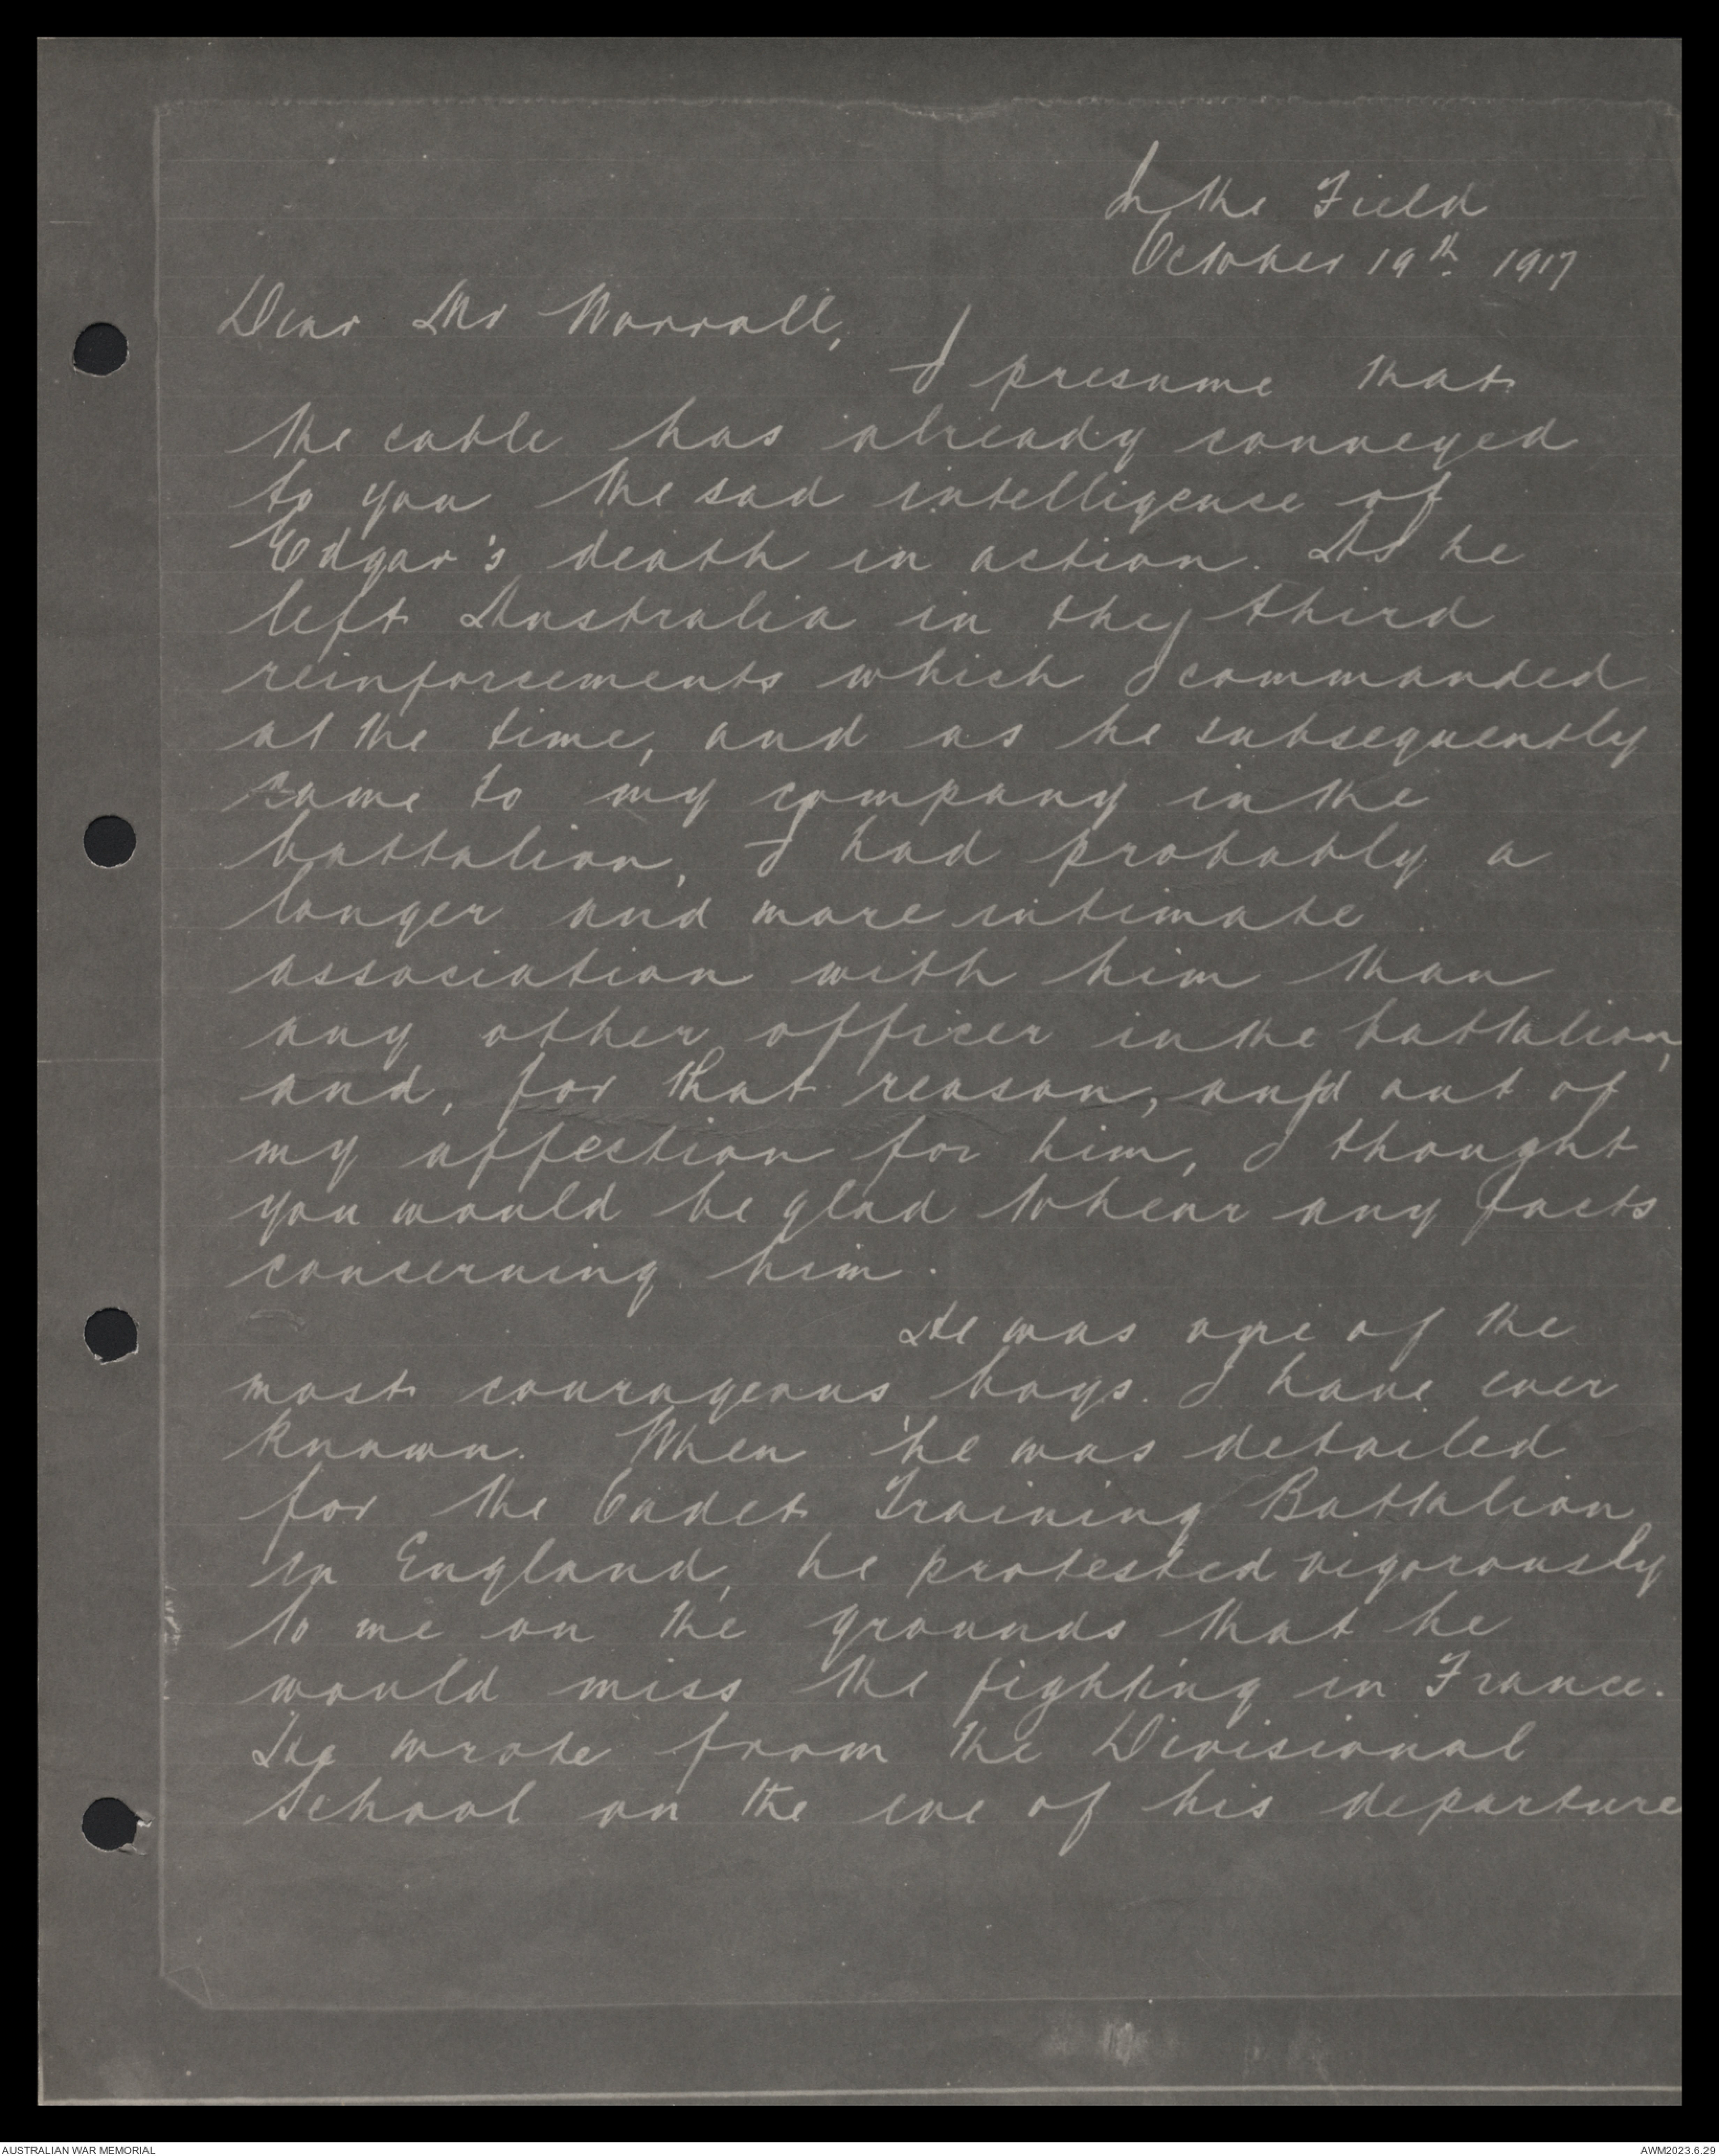 In the Field
October 19th 1917
Dear Mr Worrall,
I presume that
the cable has already conveyed
to you the sad intelligence of
Edgar's death in action. As he
left Australia in the third
reinforcements which I commanded
at the time, and as he subsequently
came to my company in the
battalion, I had probably a
longer and more intimate
association with him than
any other officer in the battalion,
and, for that reason, and out of
my affection for him, I thought
you would be glad to hear any facts
concerning him.
He was one of the
most courageous boys. I have ever
known. When he was detailed
for the Cadet Training Battalion
in England, he protested vigorously
to me on the grounds that he
would miss the fighting in France.
He wrote from the Divisional
School on the eve of his departure
AUSTRALIAN WAR MEMORIAL
AWM2023.6.29